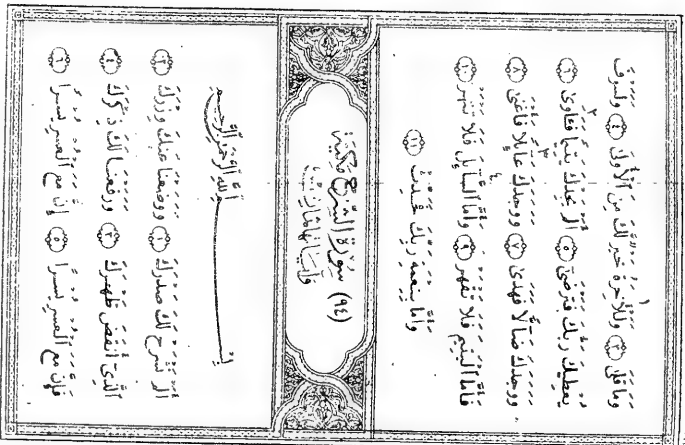 وَمَا قَلَىٰ ﴿٣﴾ وَلَلْآخِرَةُ خَيْرٌ لَّكَ مِنَ ٱلْأُولَىٰ ﴿٤﴾ وَلَسَوْفَ
يُعْطِيكَ رَبُّكَ فَتَرْضَىٰ ﴿٥﴾ أَلَمْ يَجِدْكَ يَتِيمًا فَـَٔاوَىٰ ﴿٦﴾
وَوَجَدَكَ ضَآلًّا فَهَدَىٰ ﴿٧﴾ وَوَجَدَكَ عَآئِلًا فَأَغْنَىٰ ﴿٨﴾
فَأَمَّا ٱلْيَتِيمَ فَلَا تَقْهَرْ ﴿٩﴾ وَأَمَّا ٱلسَّآئِلَ فَلَا تَنْهَرْ ﴿١٠﴾
وَأَمَّا بِنِعْمَةِ رَبِّكَ فَحَدِّثْ ﴿١١﴾
(٩٤) سورة الشرح مكية
وآياتها ثمان
بِسْمِ ٱللَّهِ ٱلرَّحْمَٰنِ ٱلرَّحِيمِ
أَلَمْ نَشْرَحْ لَكَ صَدْرَكَ ﴿١﴾ وَوَضَعْنَا عَنكَ وِزْرَكَ ﴿٢﴾
ٱلَّذِىٓ أَنقَضَ ظَهْرَكَ ﴿٣﴾ وَرَفَعْنَا لَكَ ذِكْرَكَ ﴿٤﴾
فَإِنَّ مَعَ ٱلْعُسْرِ يُسْرًا ﴿٥﴾ إِنَّ مَعَ ٱلْعُسْرِ يُسْرًا ﴿٦﴾